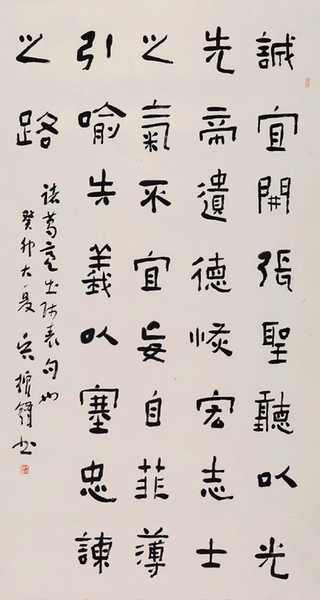 誠宜開張聖聽以光
先帝遺德恢宏志士
之氣不宜妄自菲薄
引喻失義以塞忠諫
之路
諸葛亮出師表句也
癸卯大夏 吴振鋒書